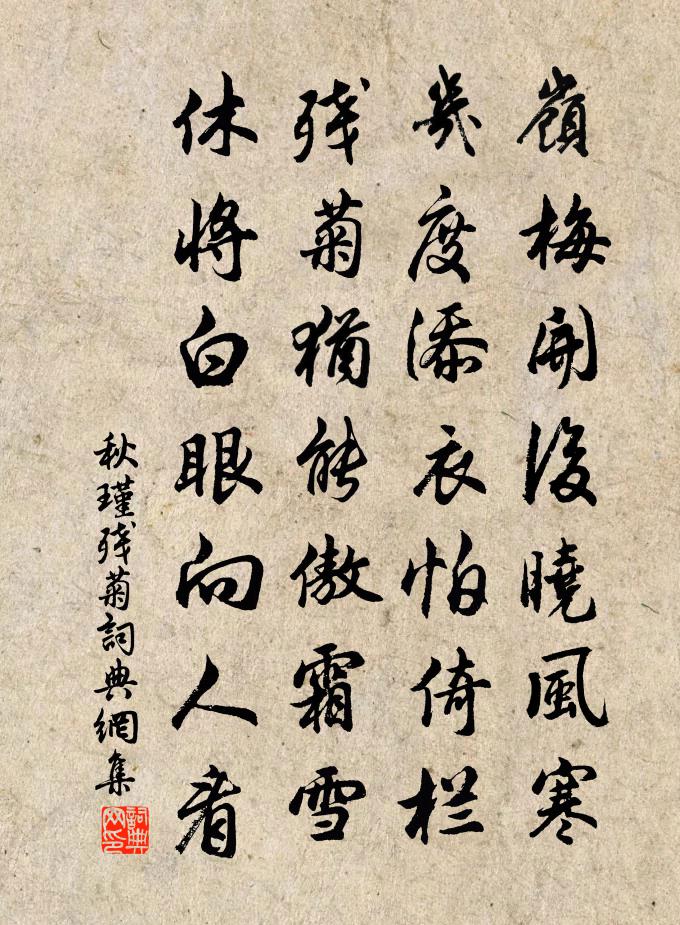 嶺梅開後曉風寒
幾度添衣怕倚栏
残菊猶能傲霜雪
休將白眼向人看
秋瑾残菊詞典網集
詞典
网印